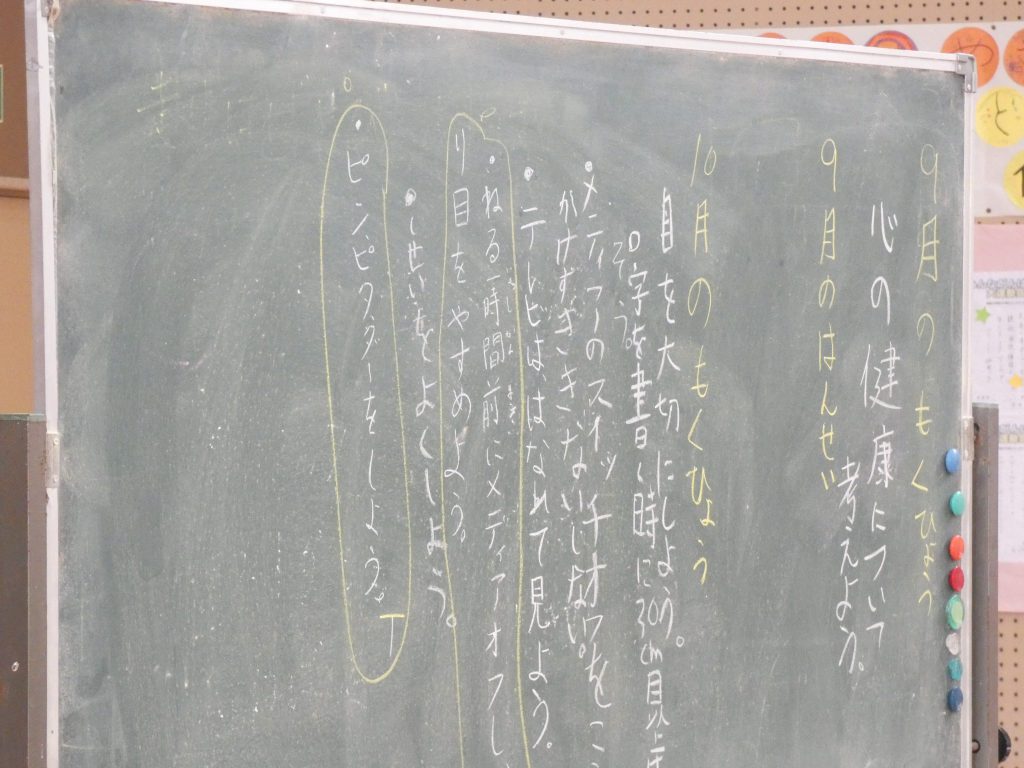 9月のもくひょう
心の健康について
考えよう。
9月のはんせい
10月のもくひょう
目を大切にしよう。
字を書く時に30cm目
メディアのスイッチオフをこ
かけすぎきをないしない。
・テレビははなれて見よう。
・ねる一時間前にメディアオフし
り目をやすめよう。
・しせいをよくしよう。
・ピンピタグーをしよう。
T
ど